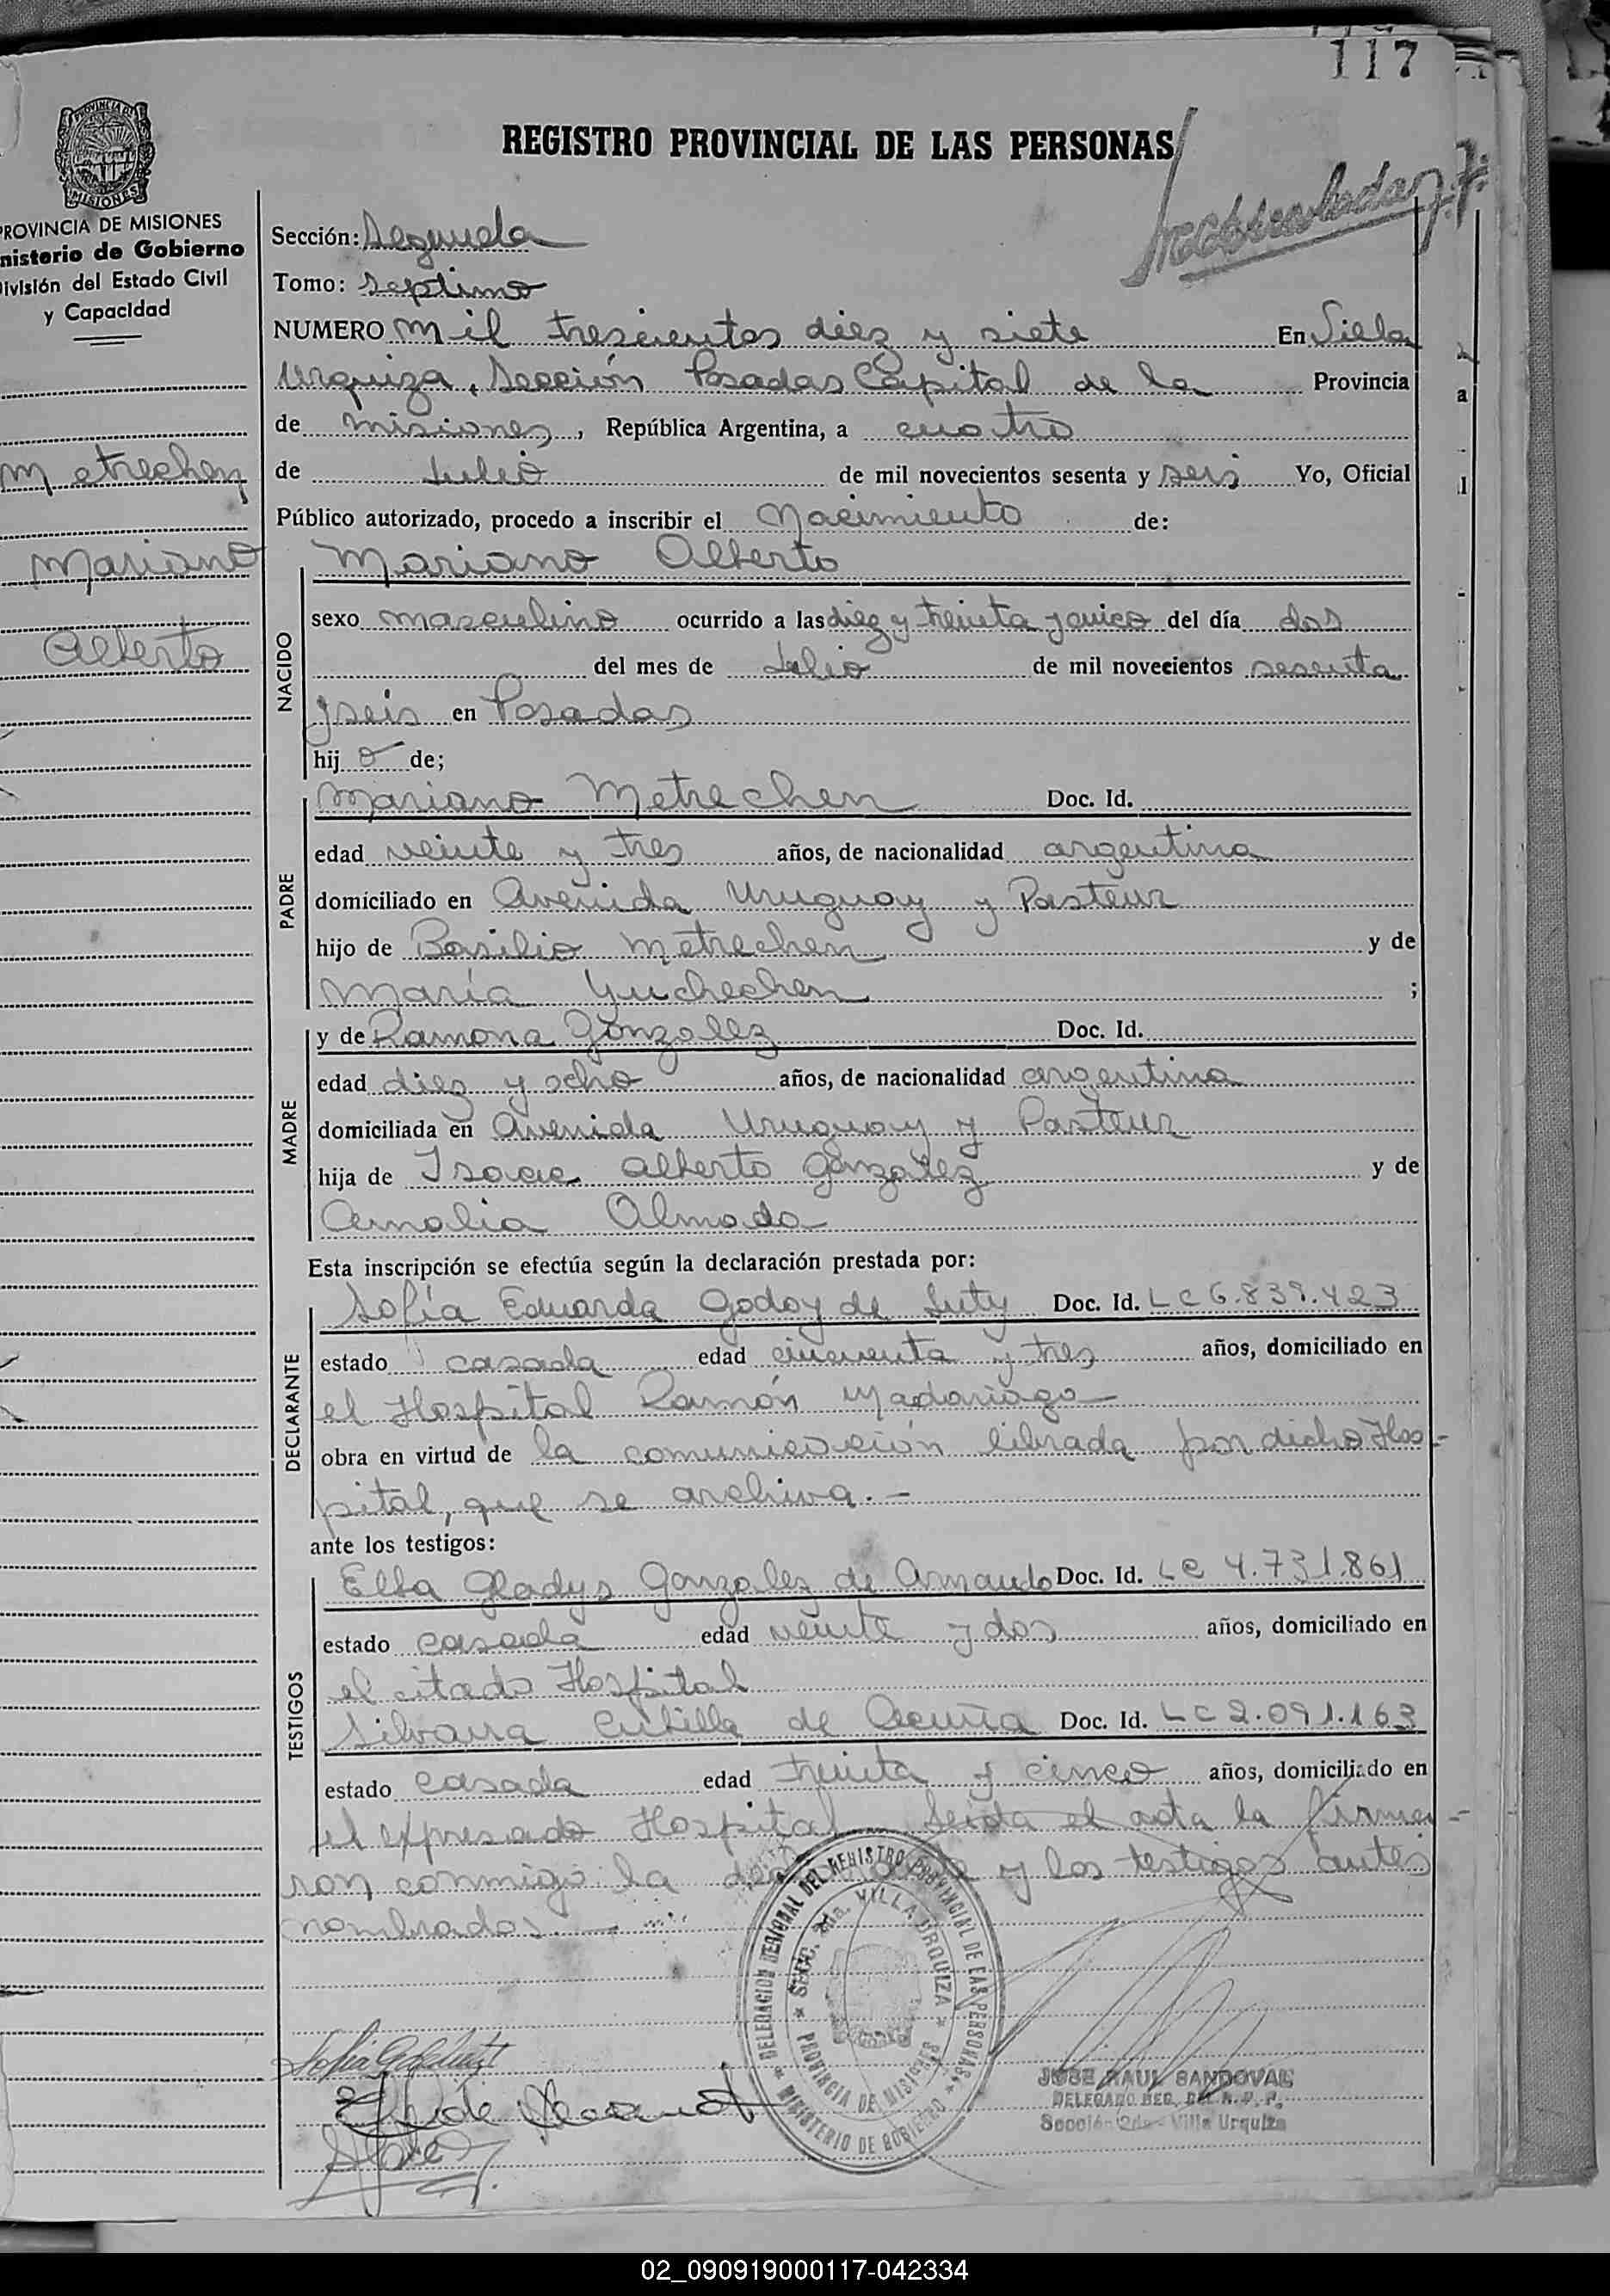 117
REGISTRO PROVINCIAL DE LAS PERSONAS
PROVINCIA DE MISIONES
PROVINCIA DE MISIONES
nisterio de Gobierno
ivisión del Estado Civil
y Capacidad
Metrechen
Mariano
Alberto
Sección: Segunda
Tomo: septimo
NUMERO mil trescientos diez y siete En Villa
Urquiza, Sección Posadas Capital de la Provincia
de misiones, República Argentina, a cuatro
de Julio de mil novecientos sesenta y seis Yo, Oficial
Público autorizado, procedo a inscribir el Nacimiento de:
Mariano Alberto
NACIDO
sexo masculino ocurrido a las diez y treinta y cinco del día dos
del mes de Julio de mil novecientos sesenta
y seis en Posadas
hijo de;
PADRE
Mariano Metrechen Doc. Id.
edad veinte y tres años, de nacionalidad argentina
domiciliado en Avenida Uruguay y Pasteur
hijo de Basilio Metrechen y de
María Yuchechen ;
MADRE
y de Ramona Gonzalez Doc. Id.
edad diez y ocho años, de nacionalidad argentina
domiciliada en Avenida Uruguay y Pasteur
hija de Isaac Alberto Gonzalez y de
Amalia Almada
Esta inscripción se efectúa según la declaración prestada por:
DECLARANTE
Sofía Eduarda Godoy de Doc. Id. LC 6.839.423
estado casada edad cincuenta y tres años, domiciliado en
el Hospital Ramón Madariaga
obra en virtud de la comunicación librada por dicho Hos-
pital, que se archiva.-
ante los testigos:
TESTIGOS
Elba Gladys Gonzalez de Doc. Id. LC 4.731.861
estado casada edad veinte y dos años, domiciliado en
el citado Hospital
Silvana Cubilla de Acuña Doc. Id. LC 2.091.163
estado casada edad treinta y cinco años, domiciliado en
el expresado Hospital Leida el acta la firma-
ron conmigo la y los testigos antes
nombrados.-
DELEGACION REGIONAL DEL REGISTRO PROVINCIAL DE LAS PERSONAS
SECC. 2da. VILLA URQUIZA
PROVINCIA DE MISIONES
MINISTERIO DE GOBIERNO
JOSE RAUL SANDOVAL
DELEGADO REG. DEL R. P. P.
Sección 2da - Villa Urquiza
02_090919000117-042334